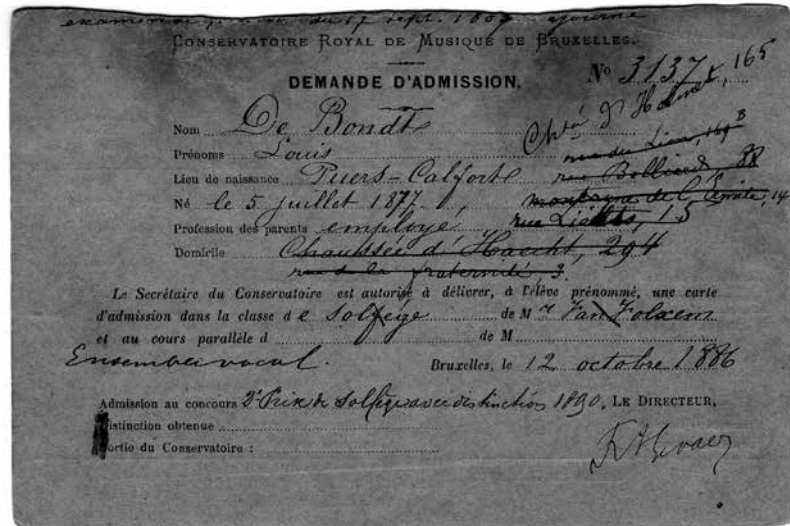 du 17 sept. ajourné
CONSERVATOIRE ROYAL DE MUSIQUE DE BRUXELLES.
DEMANDE D'ADMISSION.
Nº 3137
165
Nom De Bondt
Prénoms Louis
Lieu de naissance Puers-Calfort
rue 88
Né le 5 juillet 1877.
montagne de l'Ermite, 14
Profession des parents employé
rue 15
Domicile Chaussée d'Haecht, 294
rue de la fraternité 3.
Le Secrétaire du Conservatoire est autorisé à délivrer, à l'élève prénommé, une carte
d'admission dans la classe de Solfège de Mr Van Volxem
et au cours parallèle d de M
Ensemble vocal. Bruxelles, le 12 octobre 1886
Admission au concours 2e Prix de Solfège avec distinction 1890. LE DIRECTEUR,
Distinction obtenue
Sortie du Conservatoire :